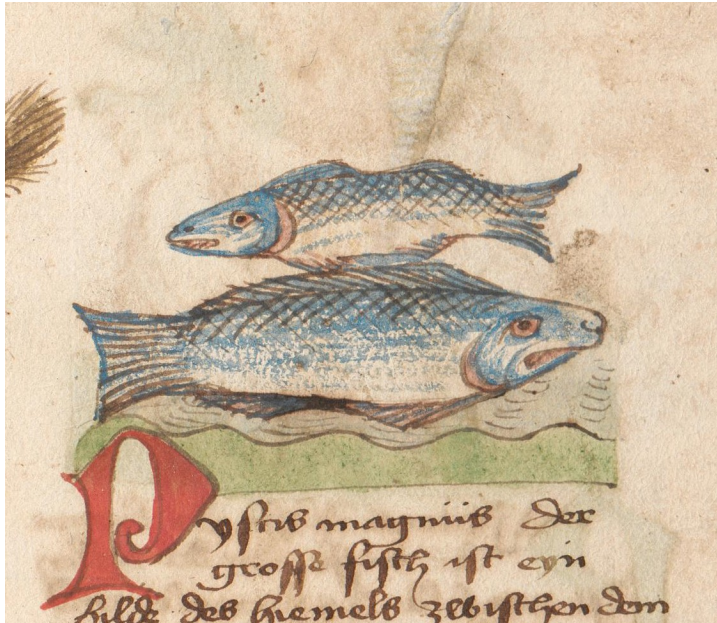 Pyscis magnus der
grosse fisch ist eyn
bilde des hiemels zwischen dem